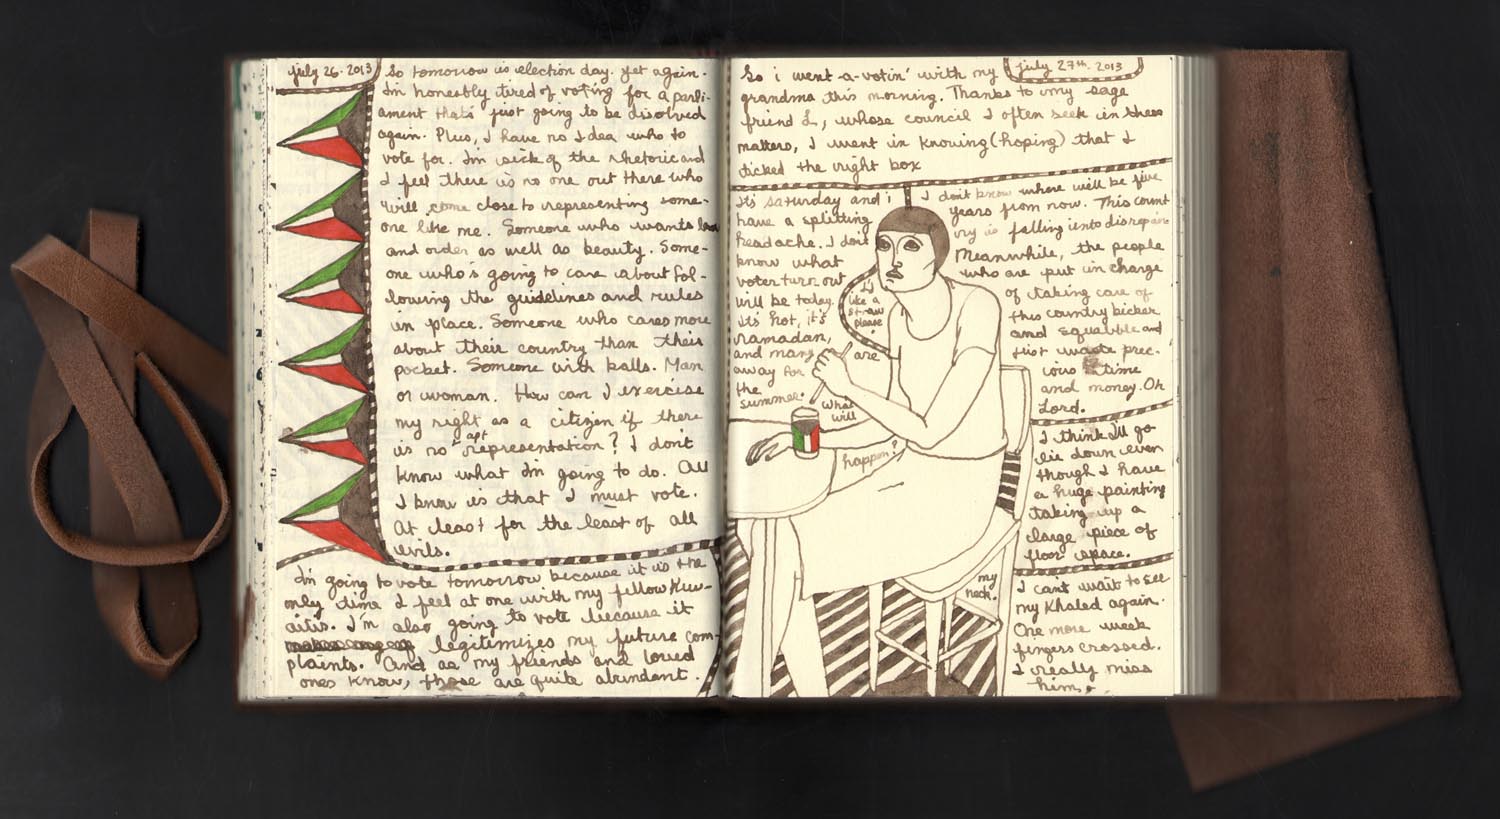 july 26. 2013
So tomorrow is election day. yet again.
I'm honestly tired of voting for a parli-
ament thats' just going to be dissolved
again. Plus, I have no idea who to
vote for. I'm sick of the rhetoric and
I feel there is no one out there who
will come close to representing some-
one like me. Someone who wants law
and order as well as beauty. Some-
one who's going to care about fol-
lowing the guidelines and rules
in place. Someone who cares more
about their country than their
pocket. Someone with balls. Man
or woman. How can I exercise
my right as a citizen if there
is no apt representation? I don't
know what I'm going to do. All
I know is that I must vote.
At least for the least of all
evils.
I'm going to vote tomorrow because it is the
only time I feel at one with my fellow Kuw-
aitis. I'm also going to vote because it
legitimizes my future com-
plaints. And as my friends and loved
ones know, those are quite abundant.
july 27th. 2013
So i went-a-votin' with my
grandma this morning. Thanks to my sage
friend L, whose council I often seek in these
matters, I went in knowing (hoping) that I
ticked the right box
It's saturday and i
have a splitting
headache. I don't
know what
voter turn out
will be today.
It's hot, it's
ramadan,
and many are
away for
the
summer.
What
will
happen?
I'd
like a
straw
please
I don't know where we'll be five
years from now. This count
ry is falling into disrepair
Meanwhile, the people
who are put in charge
of taking care of
this country bicker
and squabble and
just waste prec-
ious time
and money. Oh
Lord.
I think I'll go
lie down even
though I have
a huge painting
taking up a
large piece of
floor space.
my
neck.
I can't wait to see
my Khaled again.
One more week
fingers crossed.
I really miss
him.